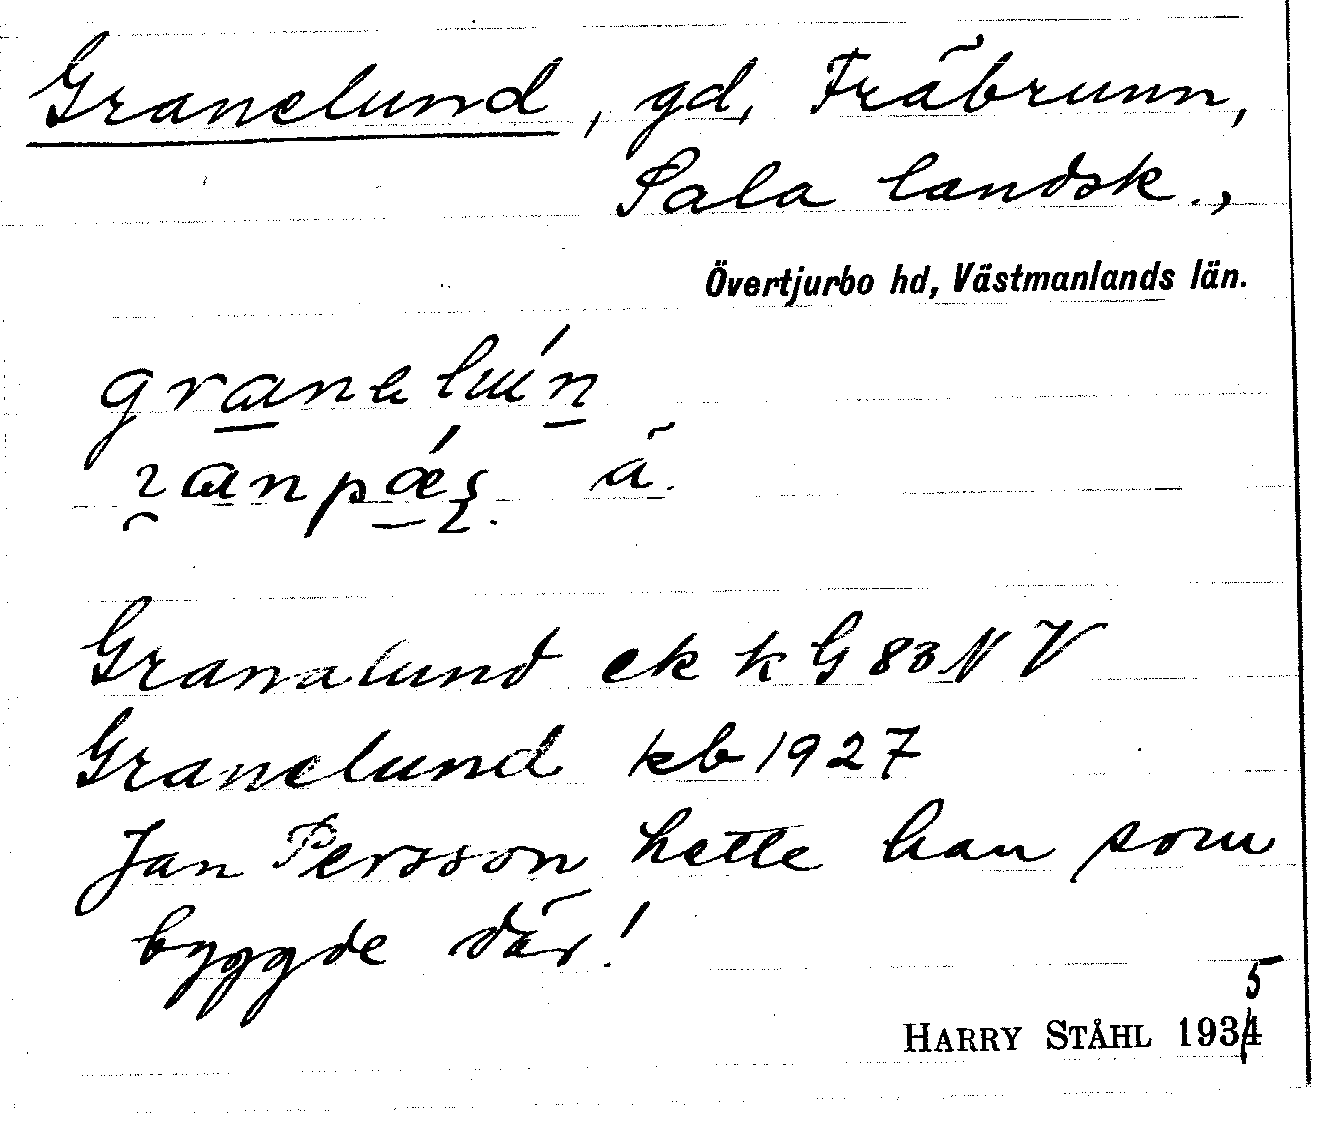 Granelund, gd, Fräbrunn,
Sala landsk.,
Övertjurbo hd, Västmanlands län.
granelún
ä.
Granalund ek k G 83 NV
Granelund kb 1927
Jan Persson hette han som
byggde där!
5
HARRY STÅHL 1934